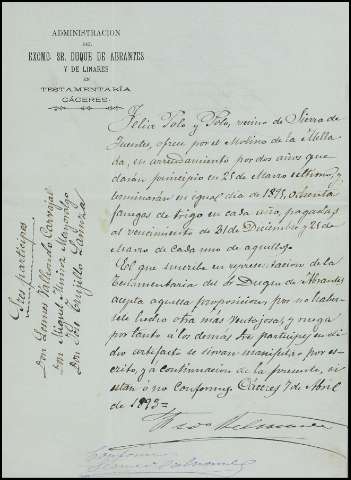 ADMINISTRACION
DEL
EXCMO. SR. DUQUE DE ABRANTES
Y DE LINARES
EN
TESTAMENTARÍA
CÁCERES
Felix Polo y Polo, vecino de Sierra de
Fuentes, ofrece por el Molino de la Mella
da, en arrendamiento por dos años que
darán principio en 25 de Marzo ultimo, y
terminarán en igual dia de 1895, ochenta
fanegas de trigo en cada año, pagadas
al vencimiento de 31 de Diciembre y 25 de
Marzo de cada uno de aquellos.
El que suscribe en representacion de la
testamentaria del Duque de Abrantes
acepta aquella proposicion por no haber
sele hecho otra más ventajosa, y ruega
por tanto á los demás tres participes en di
cho artefacto se sirvan manifestar por es
crito, y á continuacion de la presente, si
están ó no conformes. Cáceres 7 de Abril
de 1893=
Sres participes
Don Leones Vallendo Carvajal
Don Miguel Muñoz Mayoralgo
Don Julio Trujillo Lanuza
Conforme